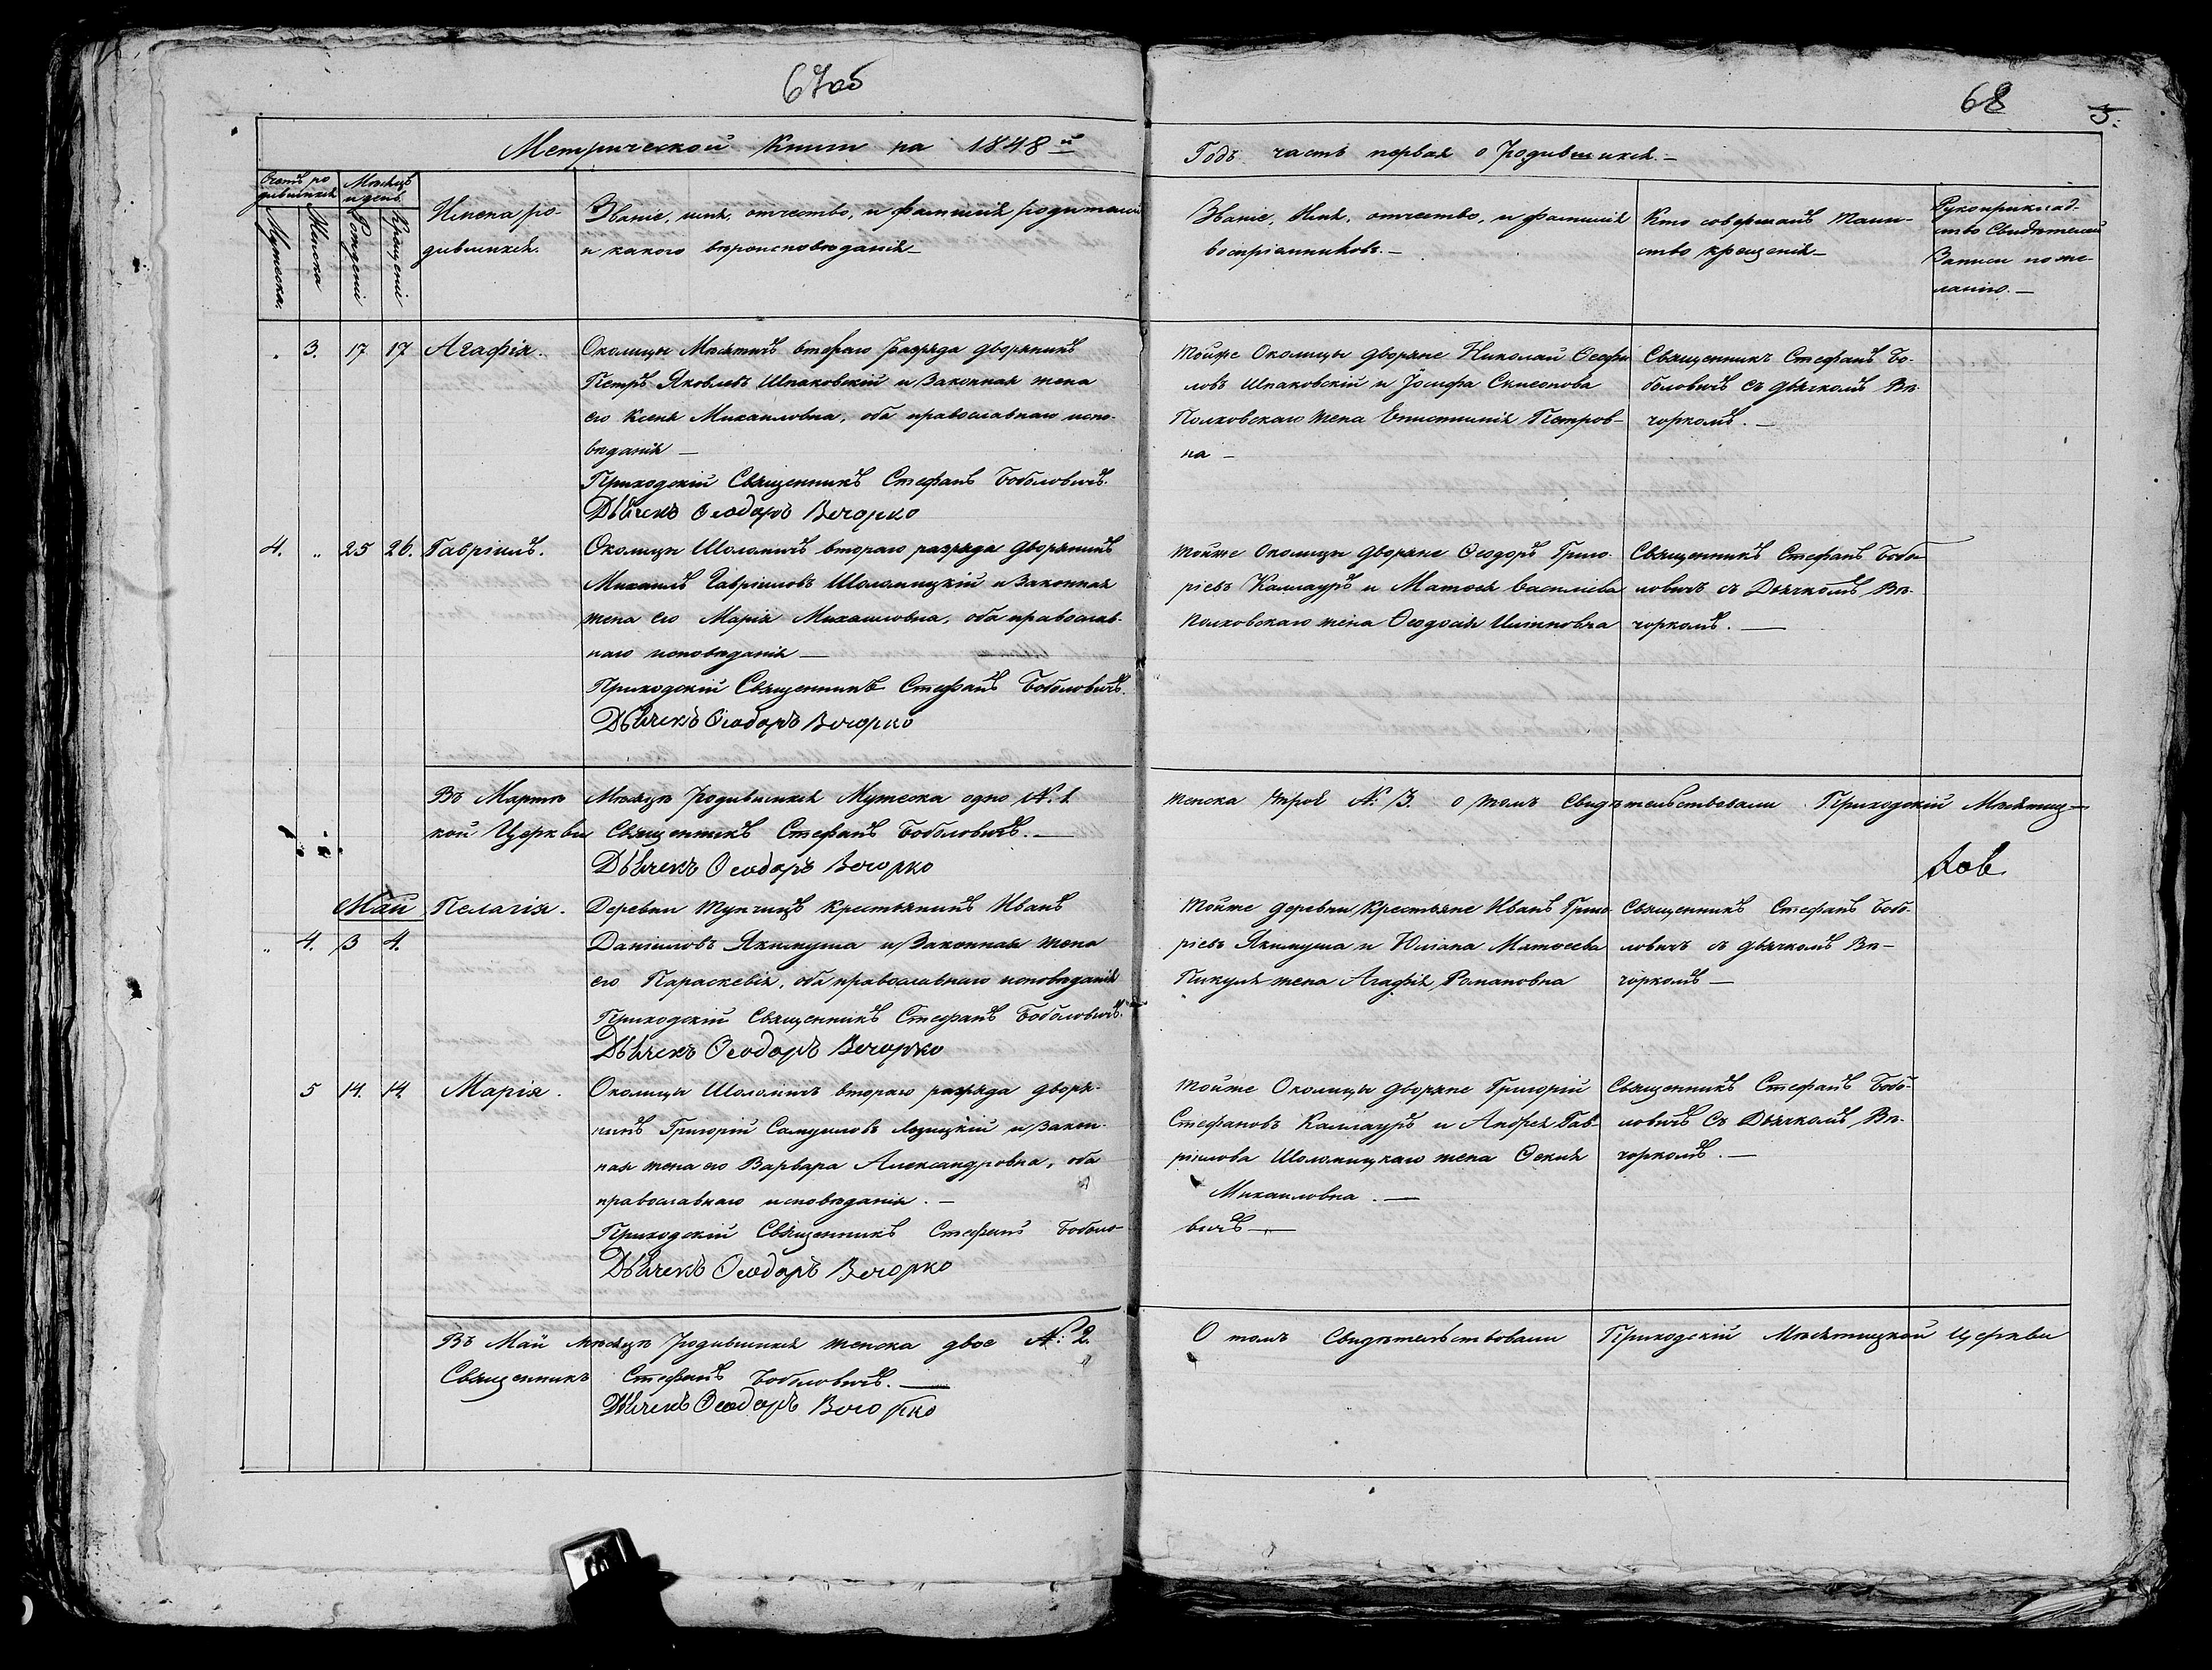 67об
68
5.
Метрической Книги на 1848й
Годъ часть первая о Родившихся. —
Счетъ ро-
дившихся
Мѣсяцъ
и день
Мужеска.
Женска
Рожденіе
Крещеніе
Имена ро-
дившихся.
Званіе, имя, отчество, и фамилія родителей
и какого вѣроисповѣданія —
Званіе, Имя, отчество, и фамилія
воспріемниковъ. —
Кто совершалъ таин-
ство крещенія —
Рукоприклад-
ство Свидѣтелей
Записи по же-
ланію. —
3. 17 17 Агафія.
Околицы Мясятичъ втораго разряда дворянинъ
Петръ Яковлевъ Шпаковскій и Законная жена
его Ксенія Михаиловна, оба православнаго испо-
вѣданія —
Приходскій Священникъ Стефанъ Боболовичъ.
Дьячекъ Ѳеодоръ Вечорко
Тойже Околицы дворяне Николай Ѳеофи-
ловъ Шпаковскій и Іосифа Симеонова
Полховскаго жена Епистимія Петров-
на —
Священникъ Стефанъ Бо-
боловичъ съ дьячкомъ Вѣ-
чоркомъ. —
4. „ 25 26. Гавріилъ.
Околицы Шоломичъ втораго разряда дворянинъ
Михаилъ Гавріиловъ Шоломицкій и Законная
жена его Марія Михаиловна, оба православ-
наго исповѣданія —
Приходскій Священникъ Стефанъ Боболовичъ.
Дьячекъ Ѳеодоръ Вечорко
Тойже околицы дворяне Ѳеодоръ Григо-
ріевъ Каллауръ и Матѳея Василіева
Полховскаго жена Ѳеодосія
Священникъ Стефанъ Бобо-
ловичъ съ Дьячкомъ Вѣ-
чоркомъ. —
Въ Мартѣ Мѣсяцѣ Родившихся Мужеска одно №. 1.
женска трое №: 3. о томъ свидѣтельствовали Приходскій Мясятиц-
кой Церкви Священникъ Стефанъ Боболовичъ. —
Дьячекъ Ѳеодоръ Вечорко
Май Пелагія.
„ 4. 3 4.
Деревни Тупчицъ крестьянинъ Иванъ
Даніиловъ Якимуша и Законная жена
его Параскевія, оба православнаго исповѣданія
Приходскій Священникъ Стефанъ Боболовичъ.
Дьячекъ Ѳеодоръ Вечорко
Тойже деревни крестьяне Иванъ Григо-
ріевъ Якимуша и Юліана Матѳеева
Пикуля жена Агафія Романовна
Священникъ Стефанъ Бобо-
ловичъ съ дьячкомъ Вѣ-
чоркомъ —
5 14. 14 Марія.
Околицы Шоломичъ втораго разряда дворя-
нинъ Григорій Самуиловъ Лозицкій и Закон-
ная жена его Варвара Александровна, оба
православнаго исповѣданія. —
Приходскій Священникъ Стефанъ Боболо-
вичъ —
Дьячекъ Ѳеодоръ Вечорко
Тойже Околицы дворяне Григорій
Стефановъ Каллауръ и Андрея Гав-
ріилова Шоломицкаго жена
Михаиловна. —
Священникъ Стефанъ Бобо-
ловичъ Съ Дьячкомъ Вѣ-
чоркомъ. —
Въ Май мѣсяцѣ Родившихся женска двое №: 2.
О томъ Свидѣтельствовали Приходскій Мясятицкой Церкви
Священникъ Стефанъ Боболовичъ. —
Дьячекъ Ѳеодоръ Вечорко